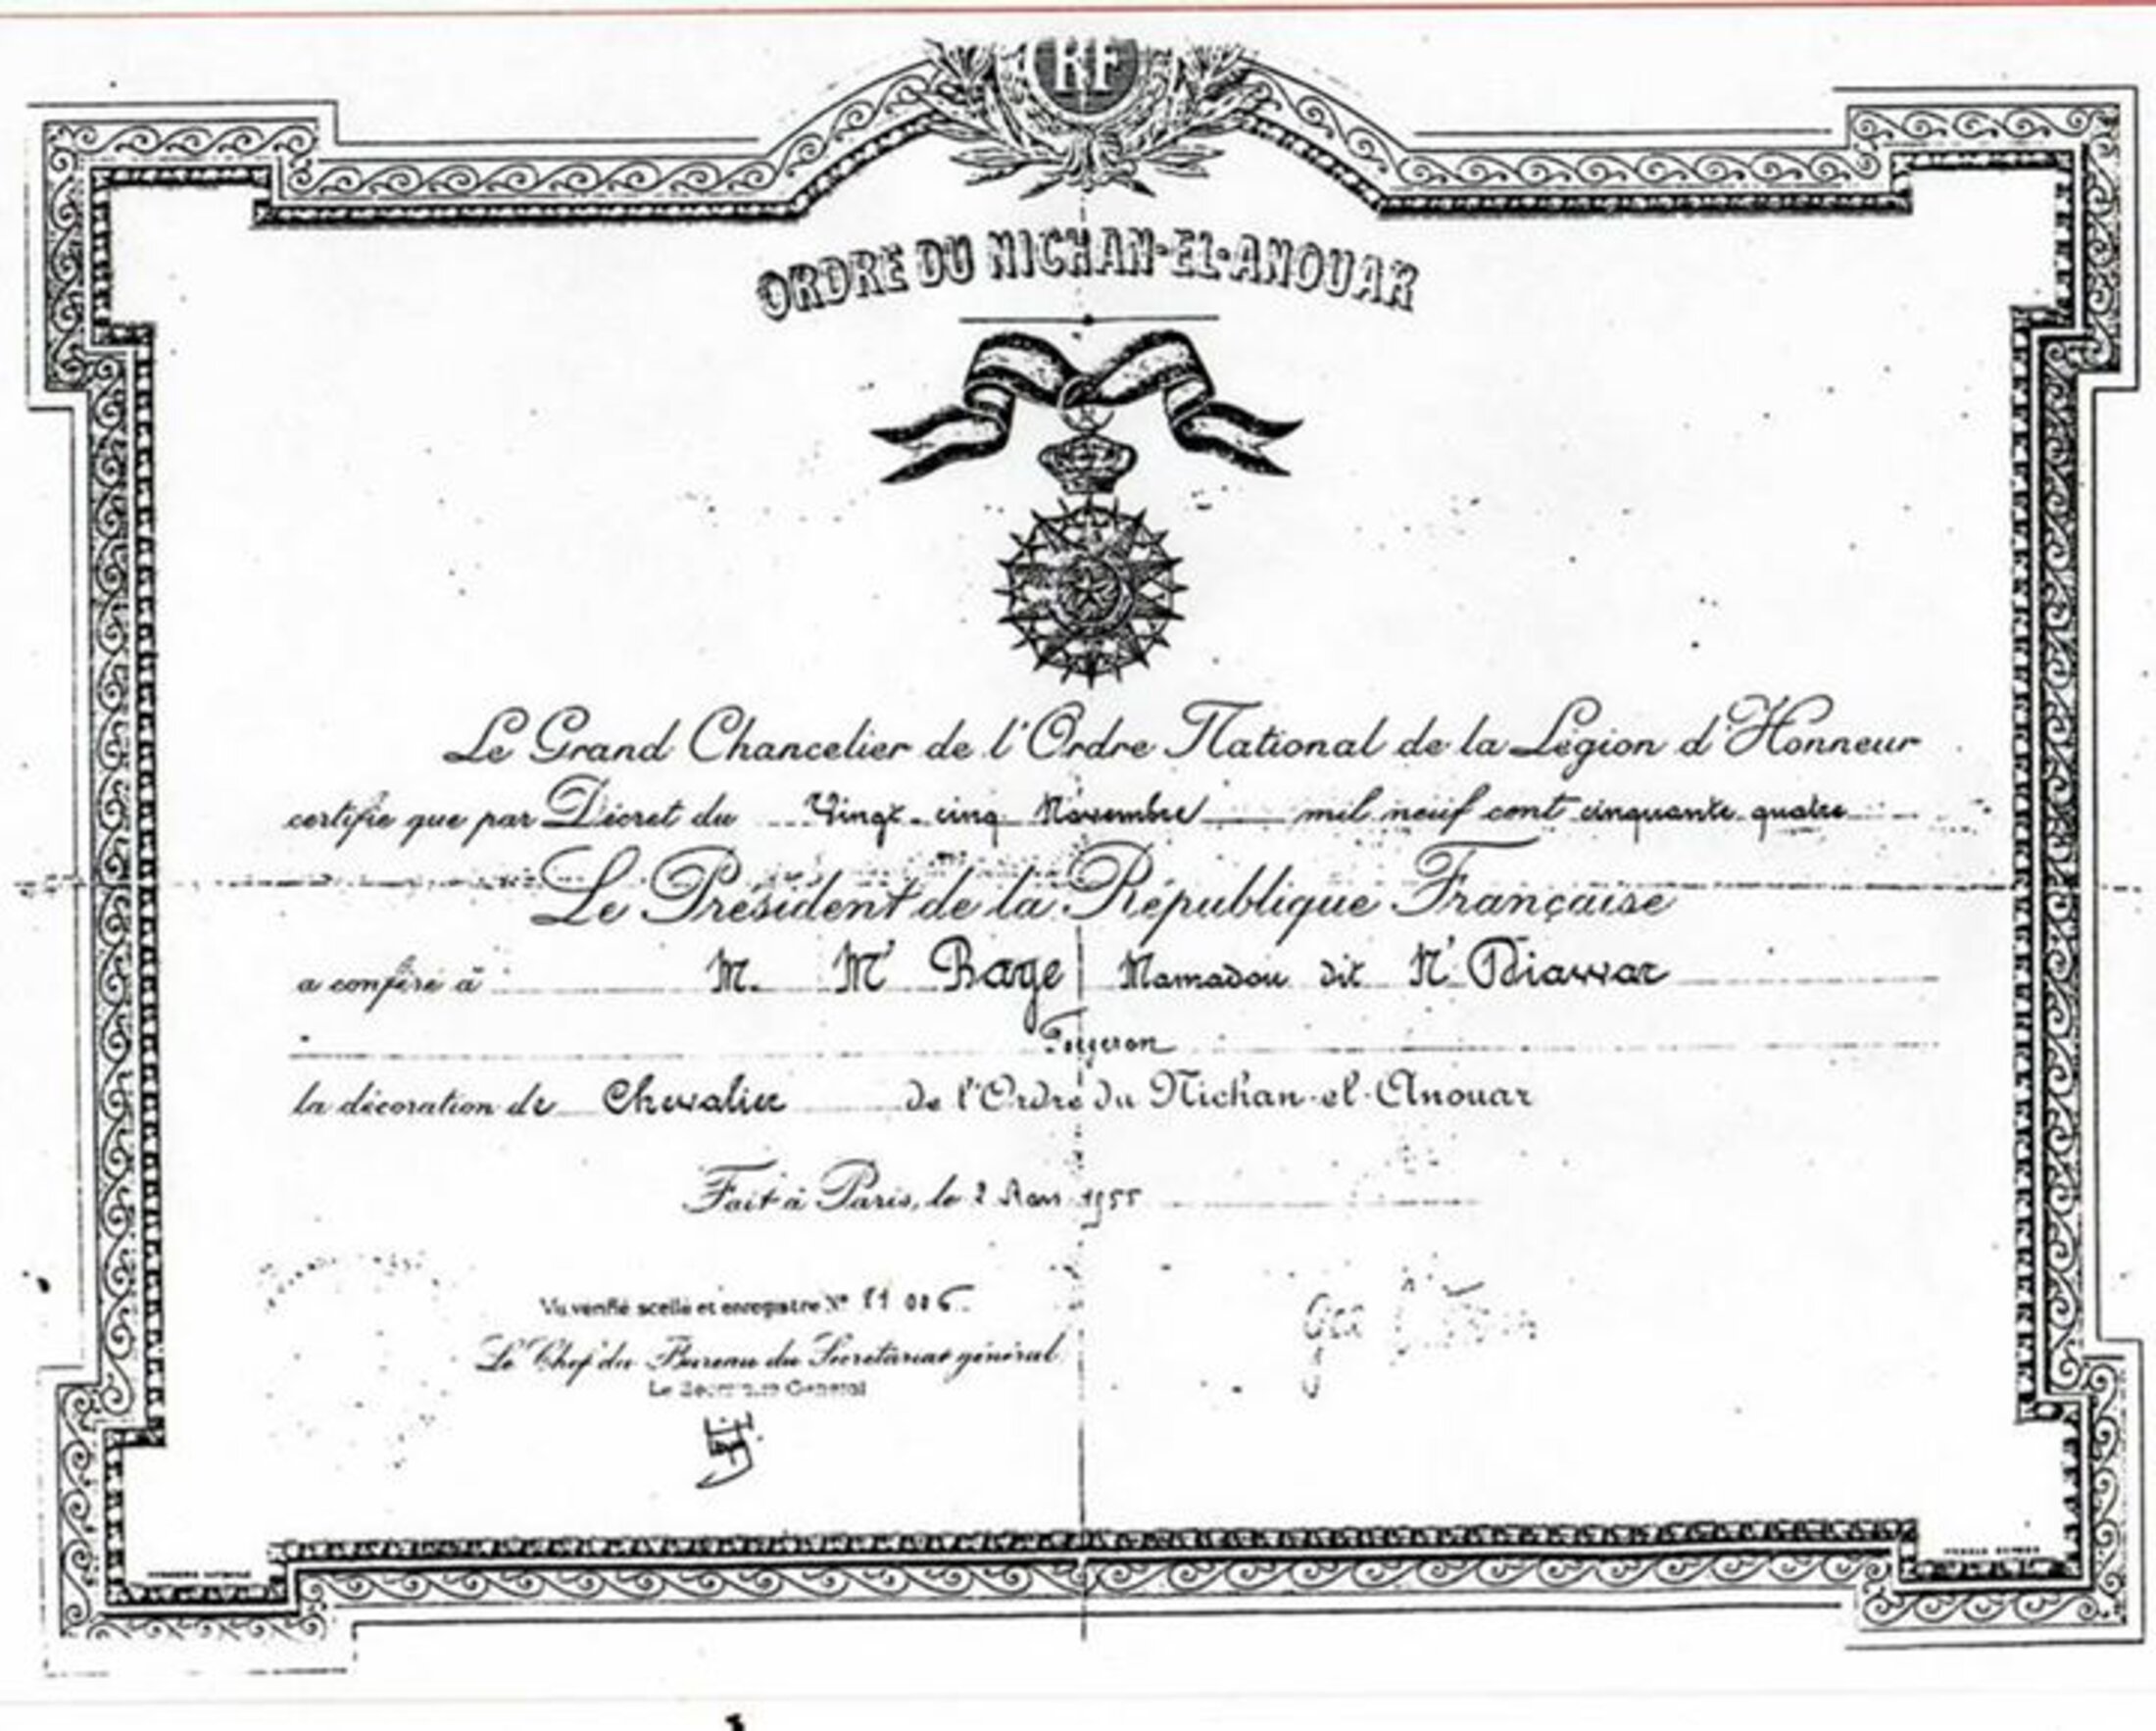 RF
ORDRE DU NICHAN-EL-ANOUAR
Le Grand Chancelier de l'Ordre National de la Légion d'Honneur
certifie que par Décret du Vingt-cinq Novembre mil neuf cent cinquante quatre
Le Président de la République Française
a conféré à M. M' Baye Mamadou dit N' Diawar
Forgeron
la décoration de Chevalier de l'Ordre du Nichan-el-Anouar
Fait à Paris, le 2 Mars 1955
Vu vérifié scellé et enregistré N° 11 006
Le Chef du Bureau du Secrétariat général
Le Secrétaire Général